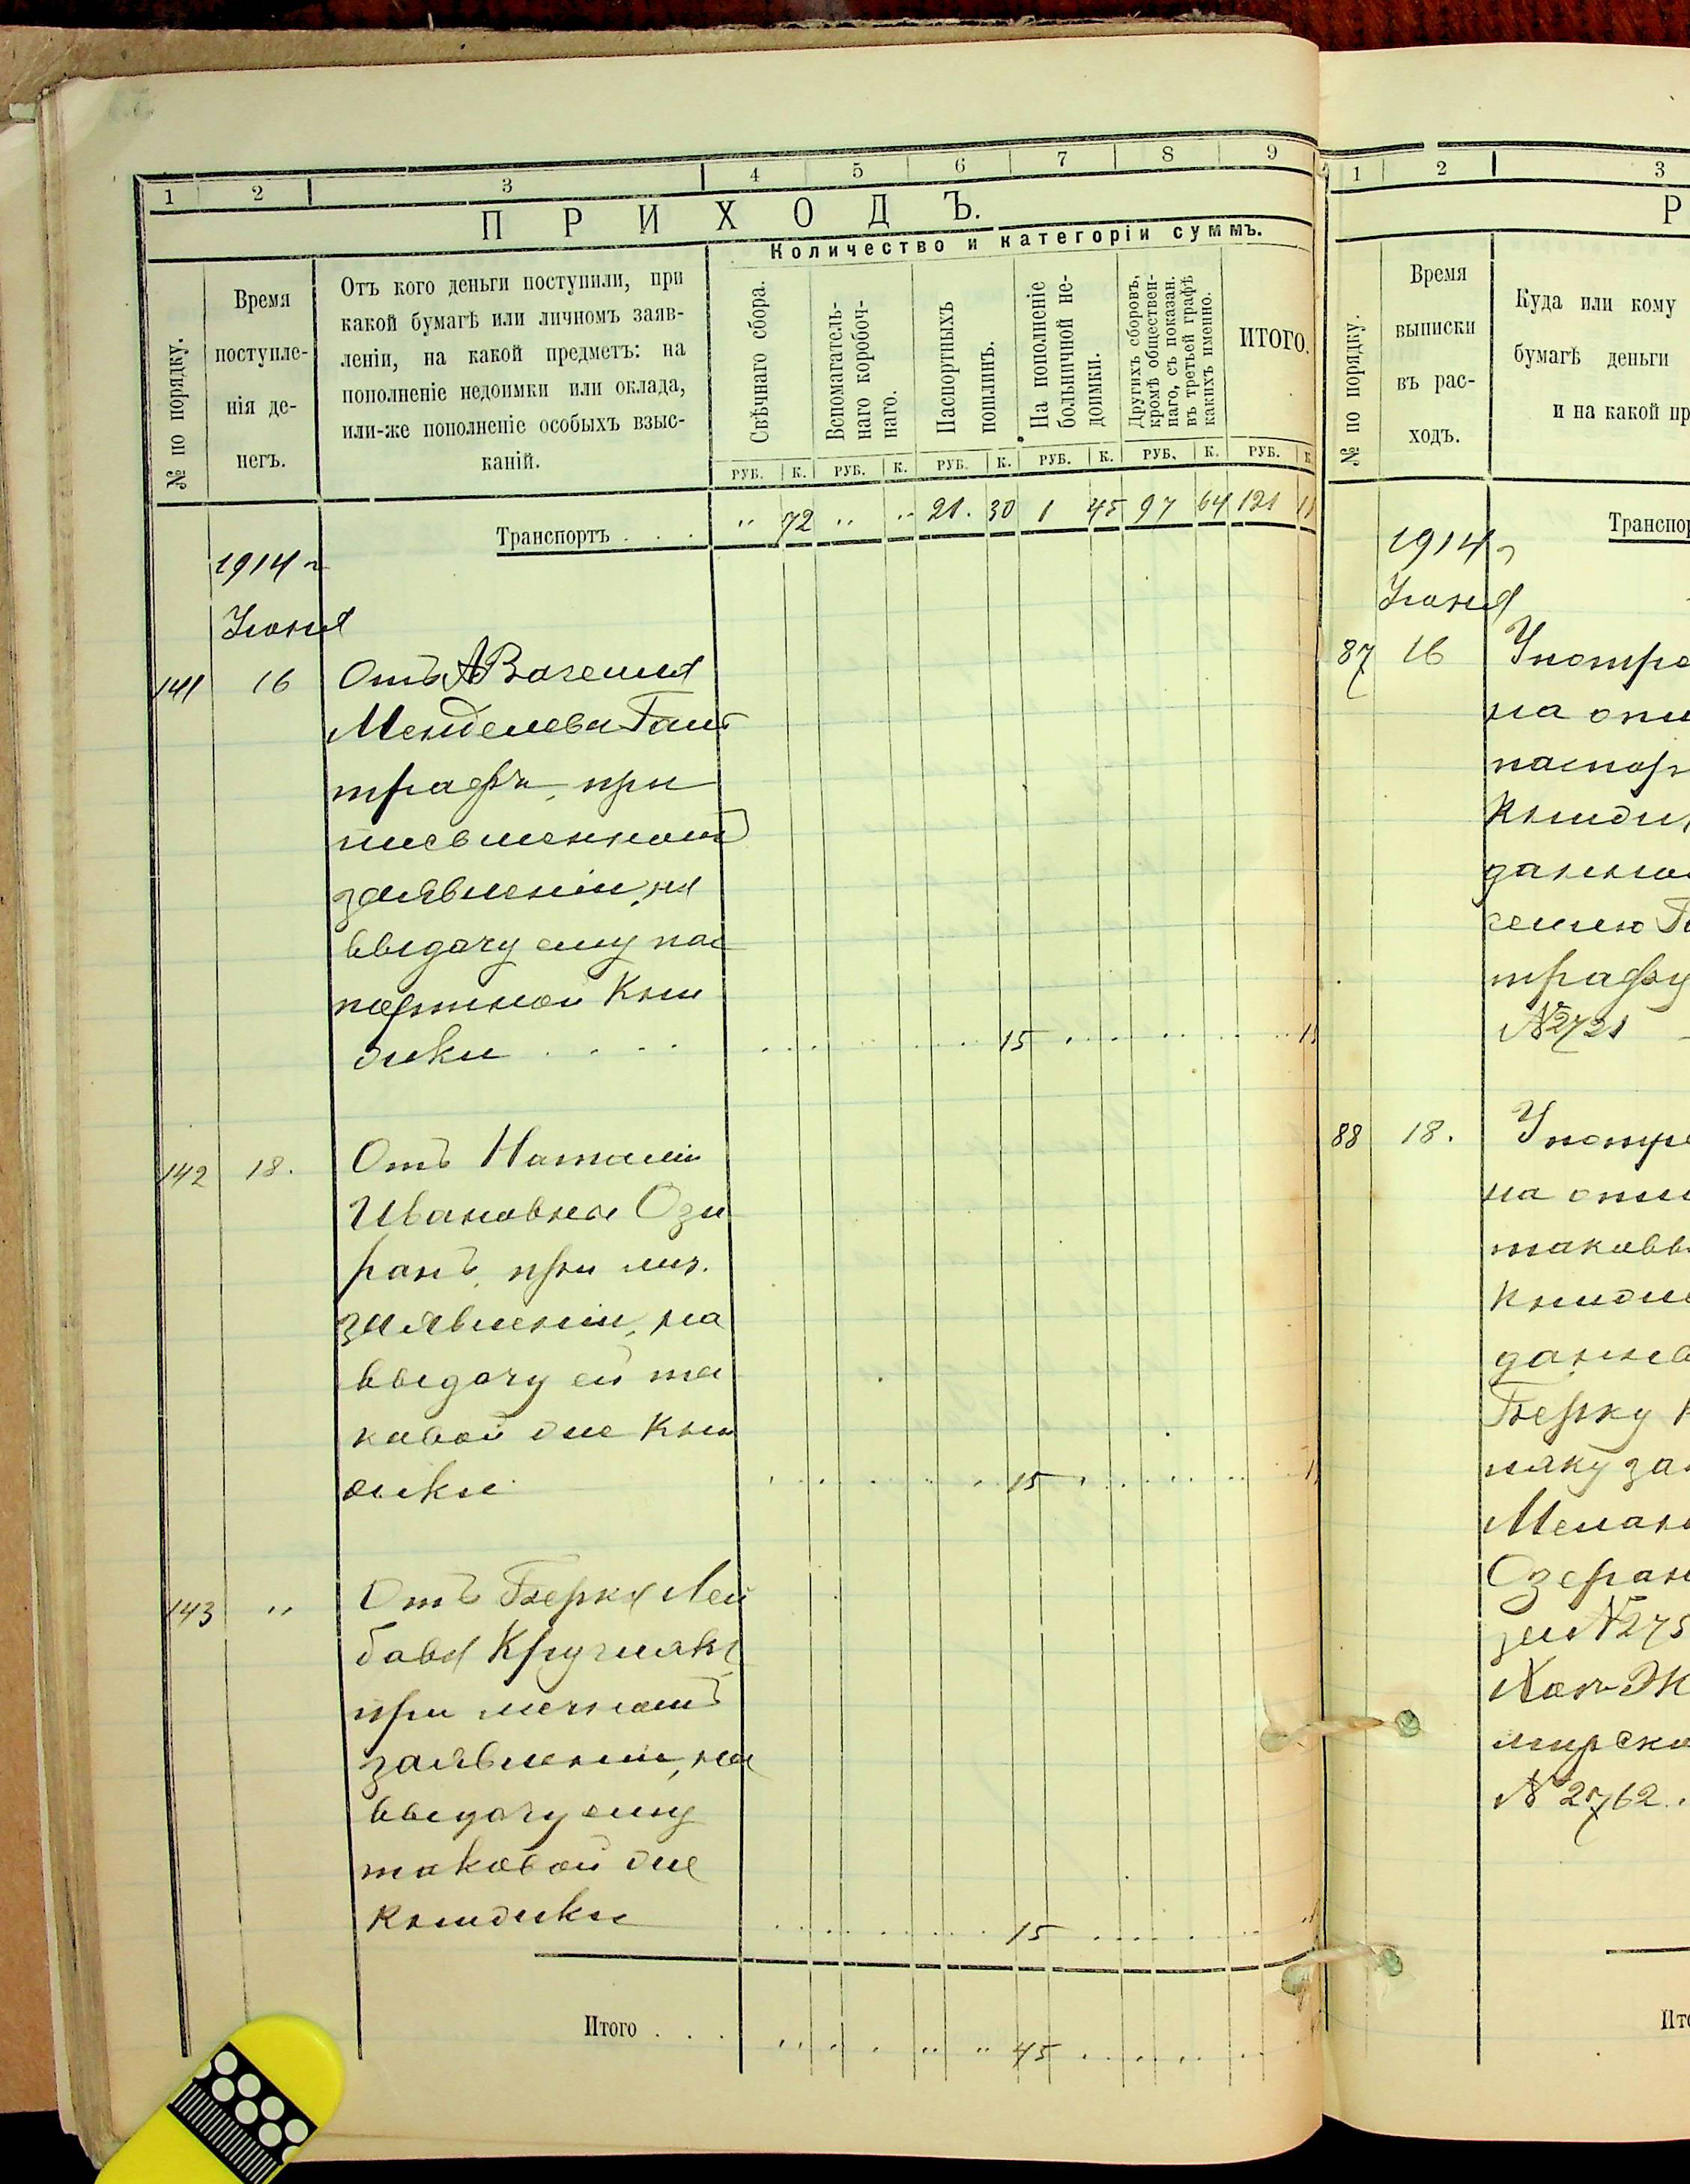 1 2 3 4 5 6 7 8 9
ПРИХОДЪ.
Количество и категоріи суммъ.
№ по порядку.
Время
поступле-
нія де-
негъ.
Отъ кого деньги поступили, при
какой бумагѣ или личномъ заяв-
леніи, на какой предметъ: на
пополненіе недоимки или оклада,
или-же пополненіе особыхъ взыс-
каній.
Свѣчнаго сбора.
Вспомагатель-
наго коробоч-
наго.
Паспортныхъ
пошлинъ.
На пополненіе
больничной не-
доимки.
Другихъ сборовъ,
кромѣ обществен-
наго, съ показан.
въ третьей графѣ
какихъ именно.
ИТОГО.
РУБ. К. РУБ. К. РУБ. К. РУБ. К. РУБ. К. РУБ. К
Транспортъ . . . " 72 " " 21. 30 1 45 97 64 121 11
1914 г
Іюня
141 16 Отъ
Менделева Гант
трафъ, при
письменномъ
заявленіи, на
выдачу ему пас
портной Кни
жки . . . . 15
142 18. Отъ
Ивановны Ози
ранъ, при лич.
заявленіи, на
выдачу ей та
кавой же Кни
жки 15
143 " Отъ Берка Лей
бава
при личномъ
заявленіи, на
выдачу ему
таковой же
Книжки 15
Итого . . . " " 45
1 2 3
Р
№ по порядку.
Время
выписки
въ рас-
ходъ.
Куда или кому
бумагѣ деньги
и на какой пр
Транспор
1914 г
Іюня
87 16 Употре
на опл
паспор
Книжк
данно
трафу
№2721
88 18. Употре
на опл
таковы
Книже
данны
Берку К
няку за
Озеран
за №275
мирско
№ 2762.
Ито